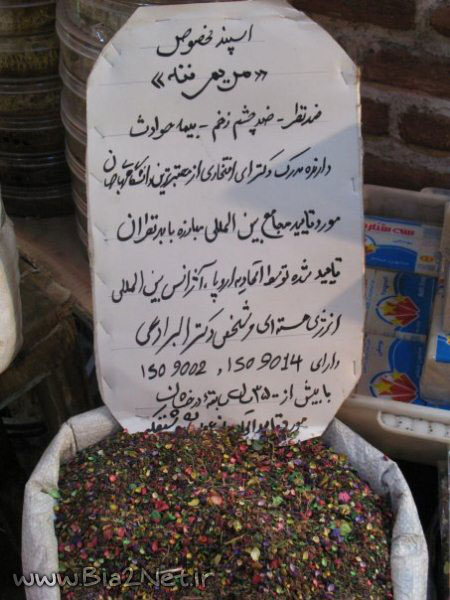 اسپند مخصوص
«مریم ننه»
ضد نظر - ضد چشم زخم - بیمه حوادث
دارنده مدرک دکترای افتخاری از معتبرترین دانشگاه های جهان
مورد تایید مجامع بین المللی مبارزه با بد نظران
تایید شده توسط اتحادیه اروپا، آژانس بین المللی
انرژی هسته ای و شخص دکتر البرادعی
دارای ISO 9014 , ISO 9002
با بیش از ۳۵۰۰ سال سابقه درخشان
مورد تایید
www.Bia2Net.ir